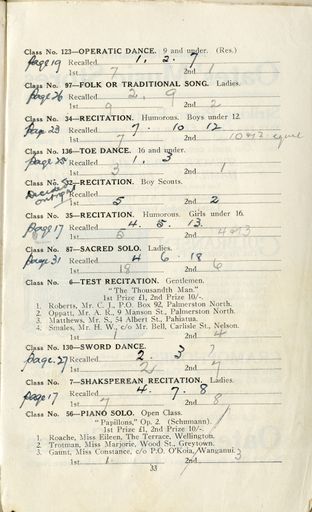 Class No. 123—OPERATIC DANCE. 9 and under. (Res.)
Page 19 Recalled 1. 2. 7
1st 7 2nd 1
Class No. 97—FOLK OR TRADITIONAL SONG. Ladies.
Page 26 Recalled 2, 9
1st 9 2nd 2
Class No. 34—RECITATION. Humorous. Boys under 12.
Page 23 Recalled 7. 10 12
1st 7 2nd 10 & 12 equal
Class No. 136—TOE DANCE. 16 and under.
Page 25 Recalled 1. 3
1st 3 2nd 1
Class No. 32—RECITATION. Boy Scouts.
Decided outright Recalled
1st 5 2nd 2
Class No. 35—RECITATION. Humorous. Girls under 16.
Page 17 Recalled 4. 5. 13.
1st 5 2nd 4 & 13
Class No. 87—SACRED SOLO. Ladies.
Page 31 Recalled 4 6 18
1st 18 2nd 6
Class No. 6—TEST RECITATION. Gentlemen.
"The Thousandth Man."
1st Prize £1, 2nd Prize 10/-.
1. Roberts, Mr. C. J., P.O. Box 92, Palmerston North.
2. Oppatt, Mr. A. R., 9 Manson St., Palmerston North.
3. Matthews, Mr. S., 54 Albert St., Pahiatua.
4. Smales, Mr. H. W., c/o Mr. Bell, Carlisle St., Nelson.
1st 1 2nd 4
Class No. 130—SWORD DANCE.
Page 27 Recalled 2. 3 7
1st 2 2nd 7
Class No. 7—SHAKSPEREAN RECITATION. Ladies.
Page 17 Recalled 4. 7. 8
1st 7 2nd 8
Class No. 56—PIANO SOLO. Open Class.
"Papillons," Op. 2. (Schumann).
1st Prize £1, 2nd Prize 10/-.
1. Roache, Miss Eileen, The Terrace, Wellington.
2. Trotman, Miss Marjorie, Wood St., Greytown.
3. Gaunt, Miss Constance, c/o P.O. O'Koia, Wanganui.
1st 1 2nd 3
33